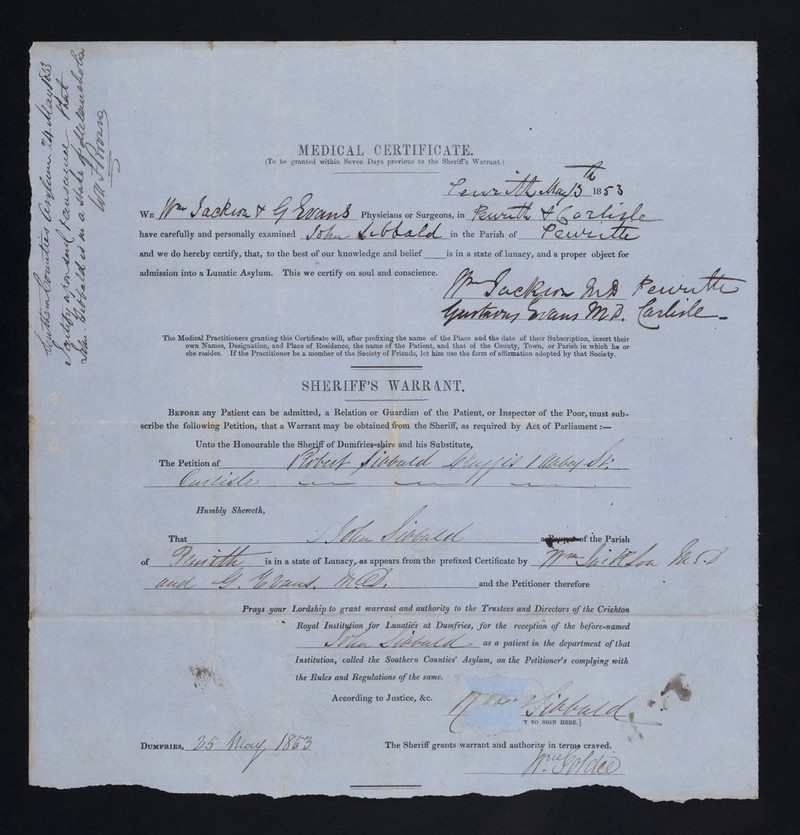 Southern Counties Asylum 24 May 1853
I certify on soul & conscience that
John Sibbald is in a state of Melancholia
W A F Browne
MEDICAL CERTIFICATE.
(To be granted within Seven Days previous to the Sheriff's Warrant.)
Penrith May 13th 1853
WE Wm Jackson & G Evans Physicians or Surgeons, in Penrith & Carlisle
have carefully and personally examined John Sibbald in the Parish of Penrith
and we do hereby certify, that, to the best of our knowledge and belief is in a state of lunacy, and a proper object for
admission into a Lunatic Asylum. This we certify on soul and conscience.
Wm Jackson MD Penrith
Gustavus Evans M.D. Carlisle
The Medical Practitioners granting this Certificate will, after prefixing the name of the Place and the date of their Subscription, insert their
own Names, Designation, and Place of Residence, the name of the Patient, and that of the County, Town, or Parish in which he or
she resides. If the Practitioner be a member of the Society of Friends, let him use the form of affirmation adopted by that Society.
SHERIFF'S WARRANT.
BEFORE any Patient can be admitted, a Relation or Guardian of the Patient, or Inspector of the Poor, must sub-
scribe the following Petition, that a Warrant may be obtained from the Sheriff, as required by Act of Parliament:—
Unto the Honourable the Sheriff of Dumfries-shire and his Substitute,
The Petition of Robert Sibbald 1 Abbey St.
Carlisle
Humbly Sheweth,
That John Sibbald a Pauper of the Parish
of Penrith is in a state of Lunacy, as appears from the prefixed Certificate by Wm Jackson M.D
and G. Evans. M.D. and the Petitioner therefore
Prays your Lordship to grant warrant and authority to the Trustees and Directors of the Crichton
Royal Institution for Lunatics at Dumfries, for the reception of the before-named
John Sibbald as a patient in the department of that
Institution, called the Southern Counties' Asylum, on the Petitioner's complying with
the Rules and Regulations of the same.
According to Justice, &c.
Sibbald
T TO SIGN HERE.]
DUMFRIES, 25 May 1853 The Sheriff grants warrant and authority in terms craved.
Wm Goldie